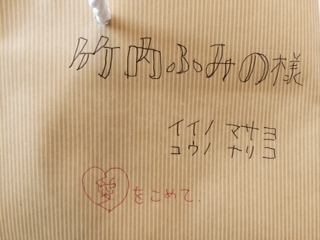 竹内ふみの様
イイノ マサヨ
コウノ ナリコ
愛をこめて.